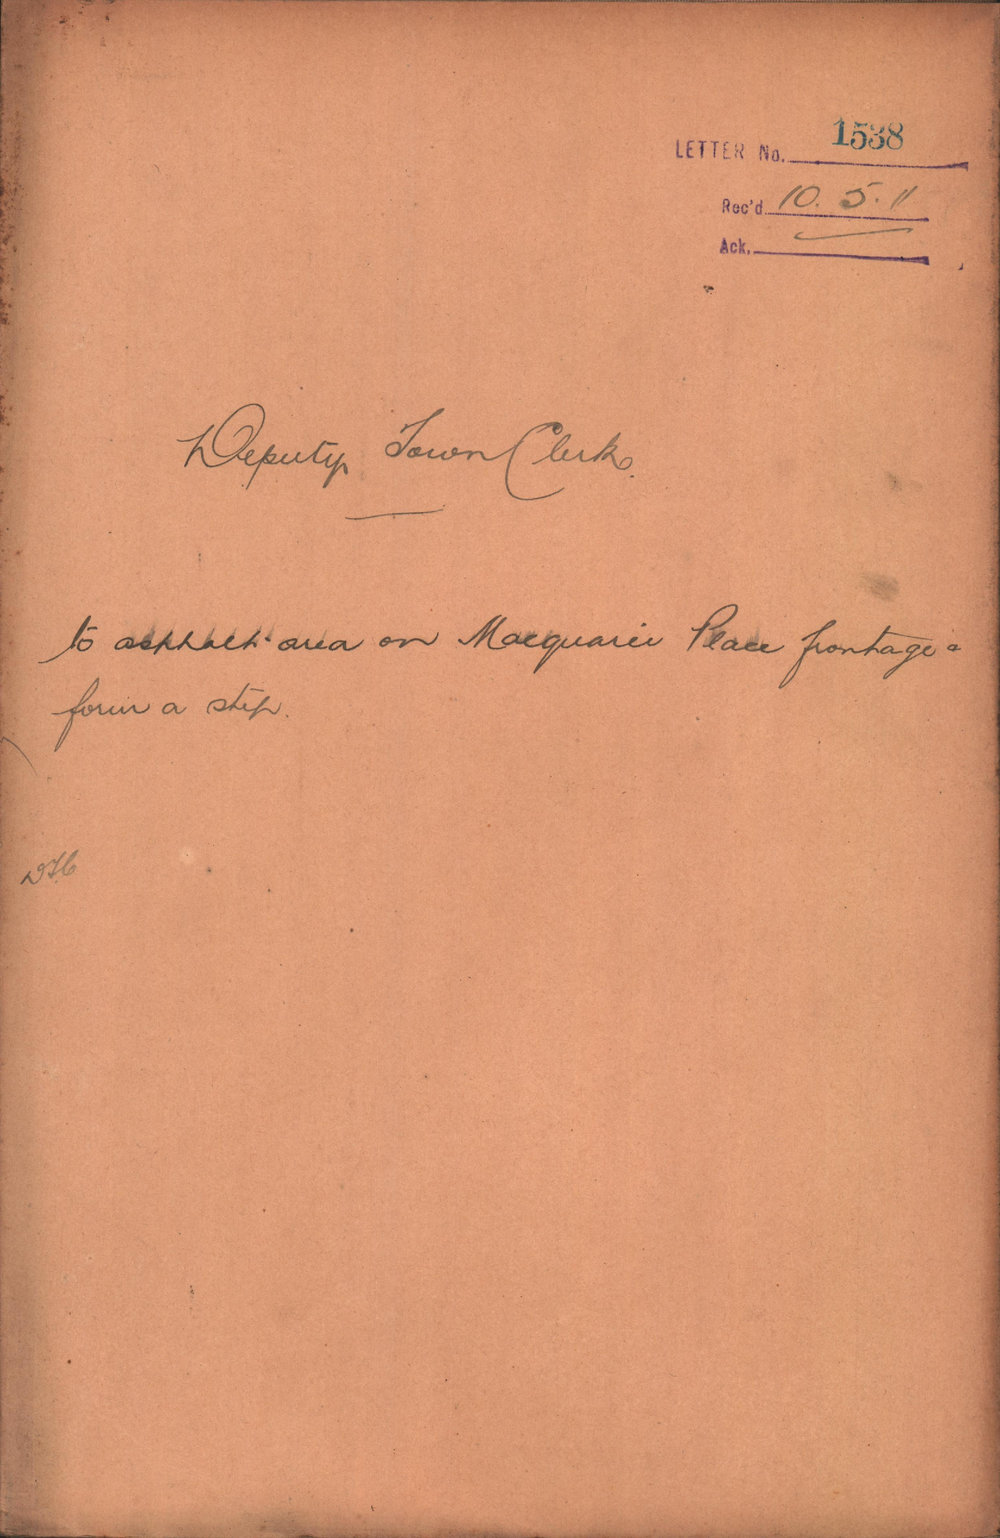 LETTER No. 1538
Rec'd 10.5.11
Ack.
Deputy Town Clerk.
to asphalt area on Macquarie Place frontage &
form a step.